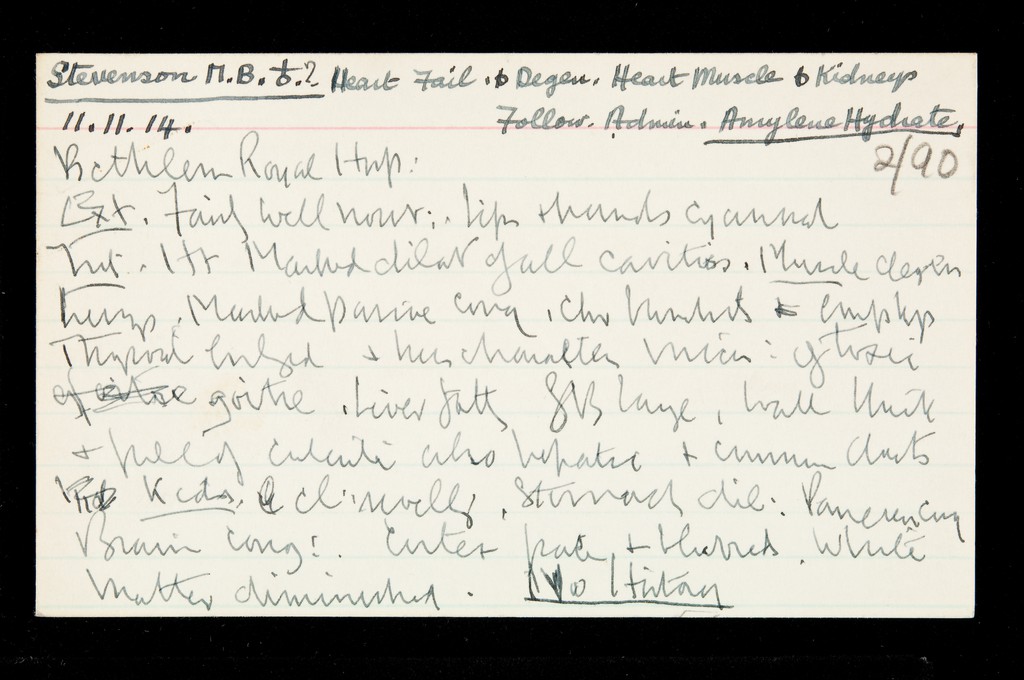 Stevenson M.B. ? Heart Fail. Degen. Heart Muscle & Kidneys
11.11.14. Follow. Admin. Amylene Hydrate.
2/90
Bethlem Royal Hosp:
Ext. Fairly well nour:. Lips + hands cyanosed
Int. Ht Marked dilat of all cavities. Muscle degen
Lungs. Marked passive cong. Chr bronchitis & emphys
Thyroid enlged + of toxic
goitre. Liver fatty GB large, wall thick
+ full of calculi also hepatic + common ducts
Kids. Stomach dil: Pancreas cong
Brain cong:. Cortex pale + blurred. White
matter diminished. No History